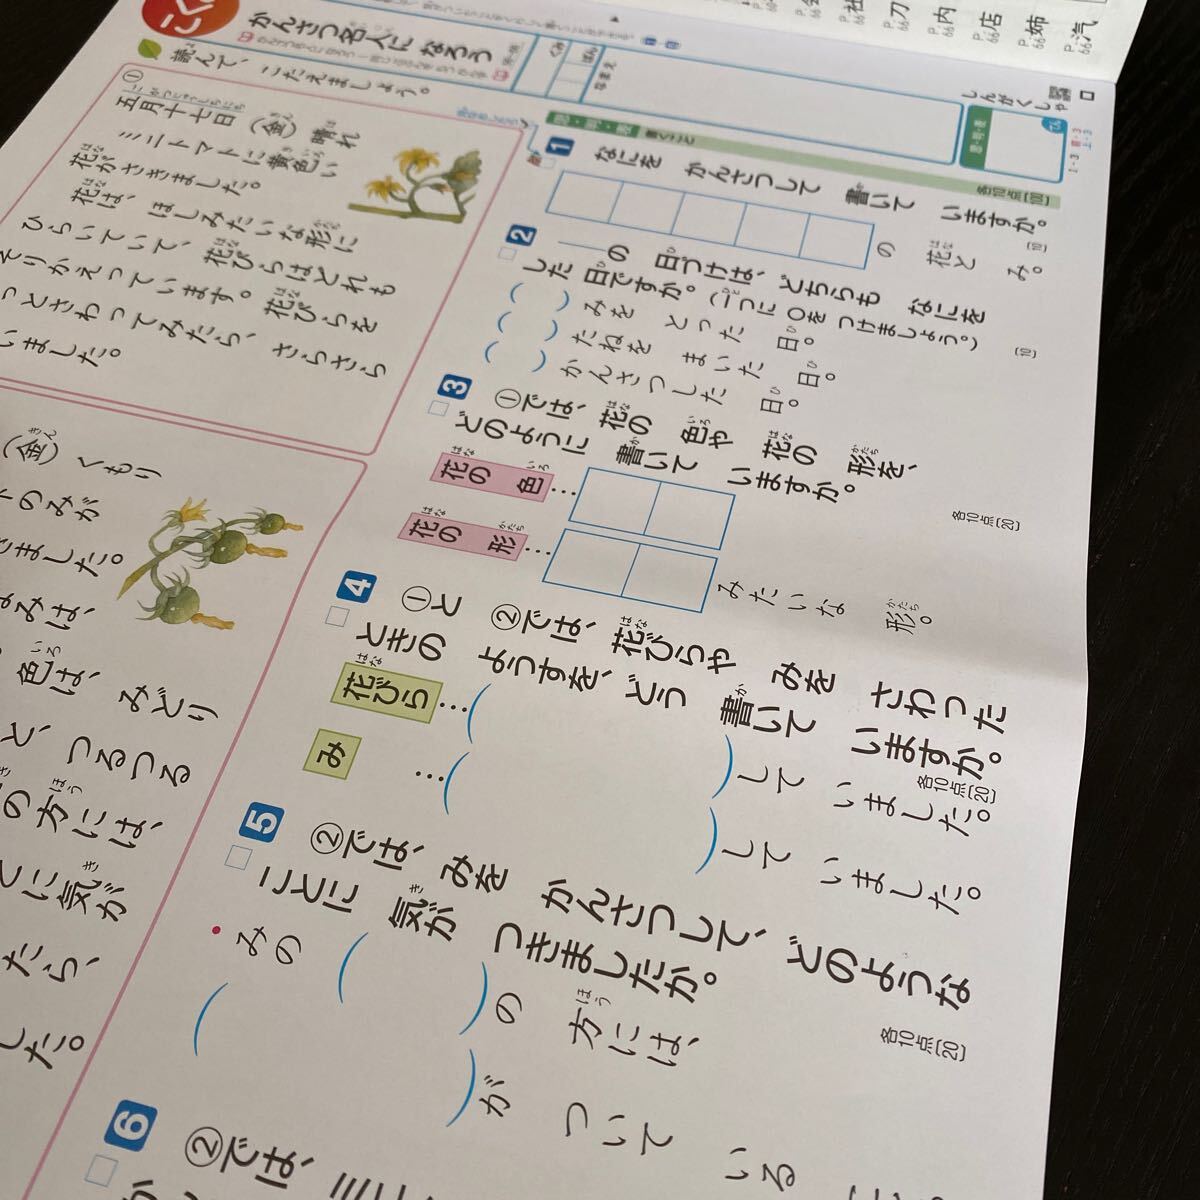 かんさつ名人に なろう
読んで、こたえましょう。
①
五月十七日(金) 晴れ
ミニトマトに黄色い
花がさきました。
花は、ほしみたいな形に
ひらいていて、花びらはどれも
そりかえっています。花びらを
っとさわってみたら、さらさら
いました。
(金) くもり
トのみが
きました。
色は、みどり
と、つるつる
の方には、
とに気が
たら、
した。
しんがくしゃ
なまえ
くみ
ばん
思・判・表
書くこと
各10点(100)
1
なにを かんさつして 書いて いますか。
(10)
の 花と み。
2
の 日づけは、どちらも なにを
した 日ですか。(一つに○を つけましょう。)
(10)
( ) みを とった 日。
( ) たねを まいた 日。
( ) かんさつした 日。
3
①では、花の 色や 花の 形を、
どのように 書いて いますか。
各10点(20)
花の 色…
花の 形…
みたいな 形。
4
①と ②では、花びらや みを さわった
ときの ようすを、どう 書いて いますか。
各10点(20)
花びら…( )して いました。
み …( )して いました。
5
②では、みを かんさつして、どのような
ことに 気が つきましたか。
各10点(20)
・みの( )の 方には、
( )が ついて いる
6
②では、ミニ
P.66 汽
P.66 姉
P.66 店
P.66 内
P.66 刀